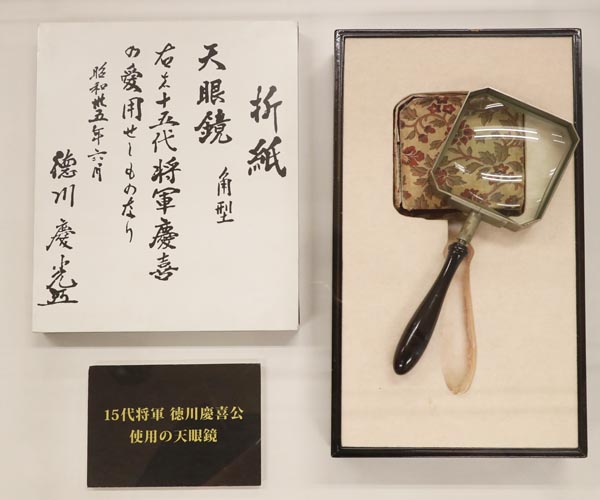 折紙
天眼鏡 角型
右は十五代将軍慶喜
の愛用せしものなり
昭和卅五年六月
徳川慶光
15代将軍 徳川慶喜公
使用の天眼鏡